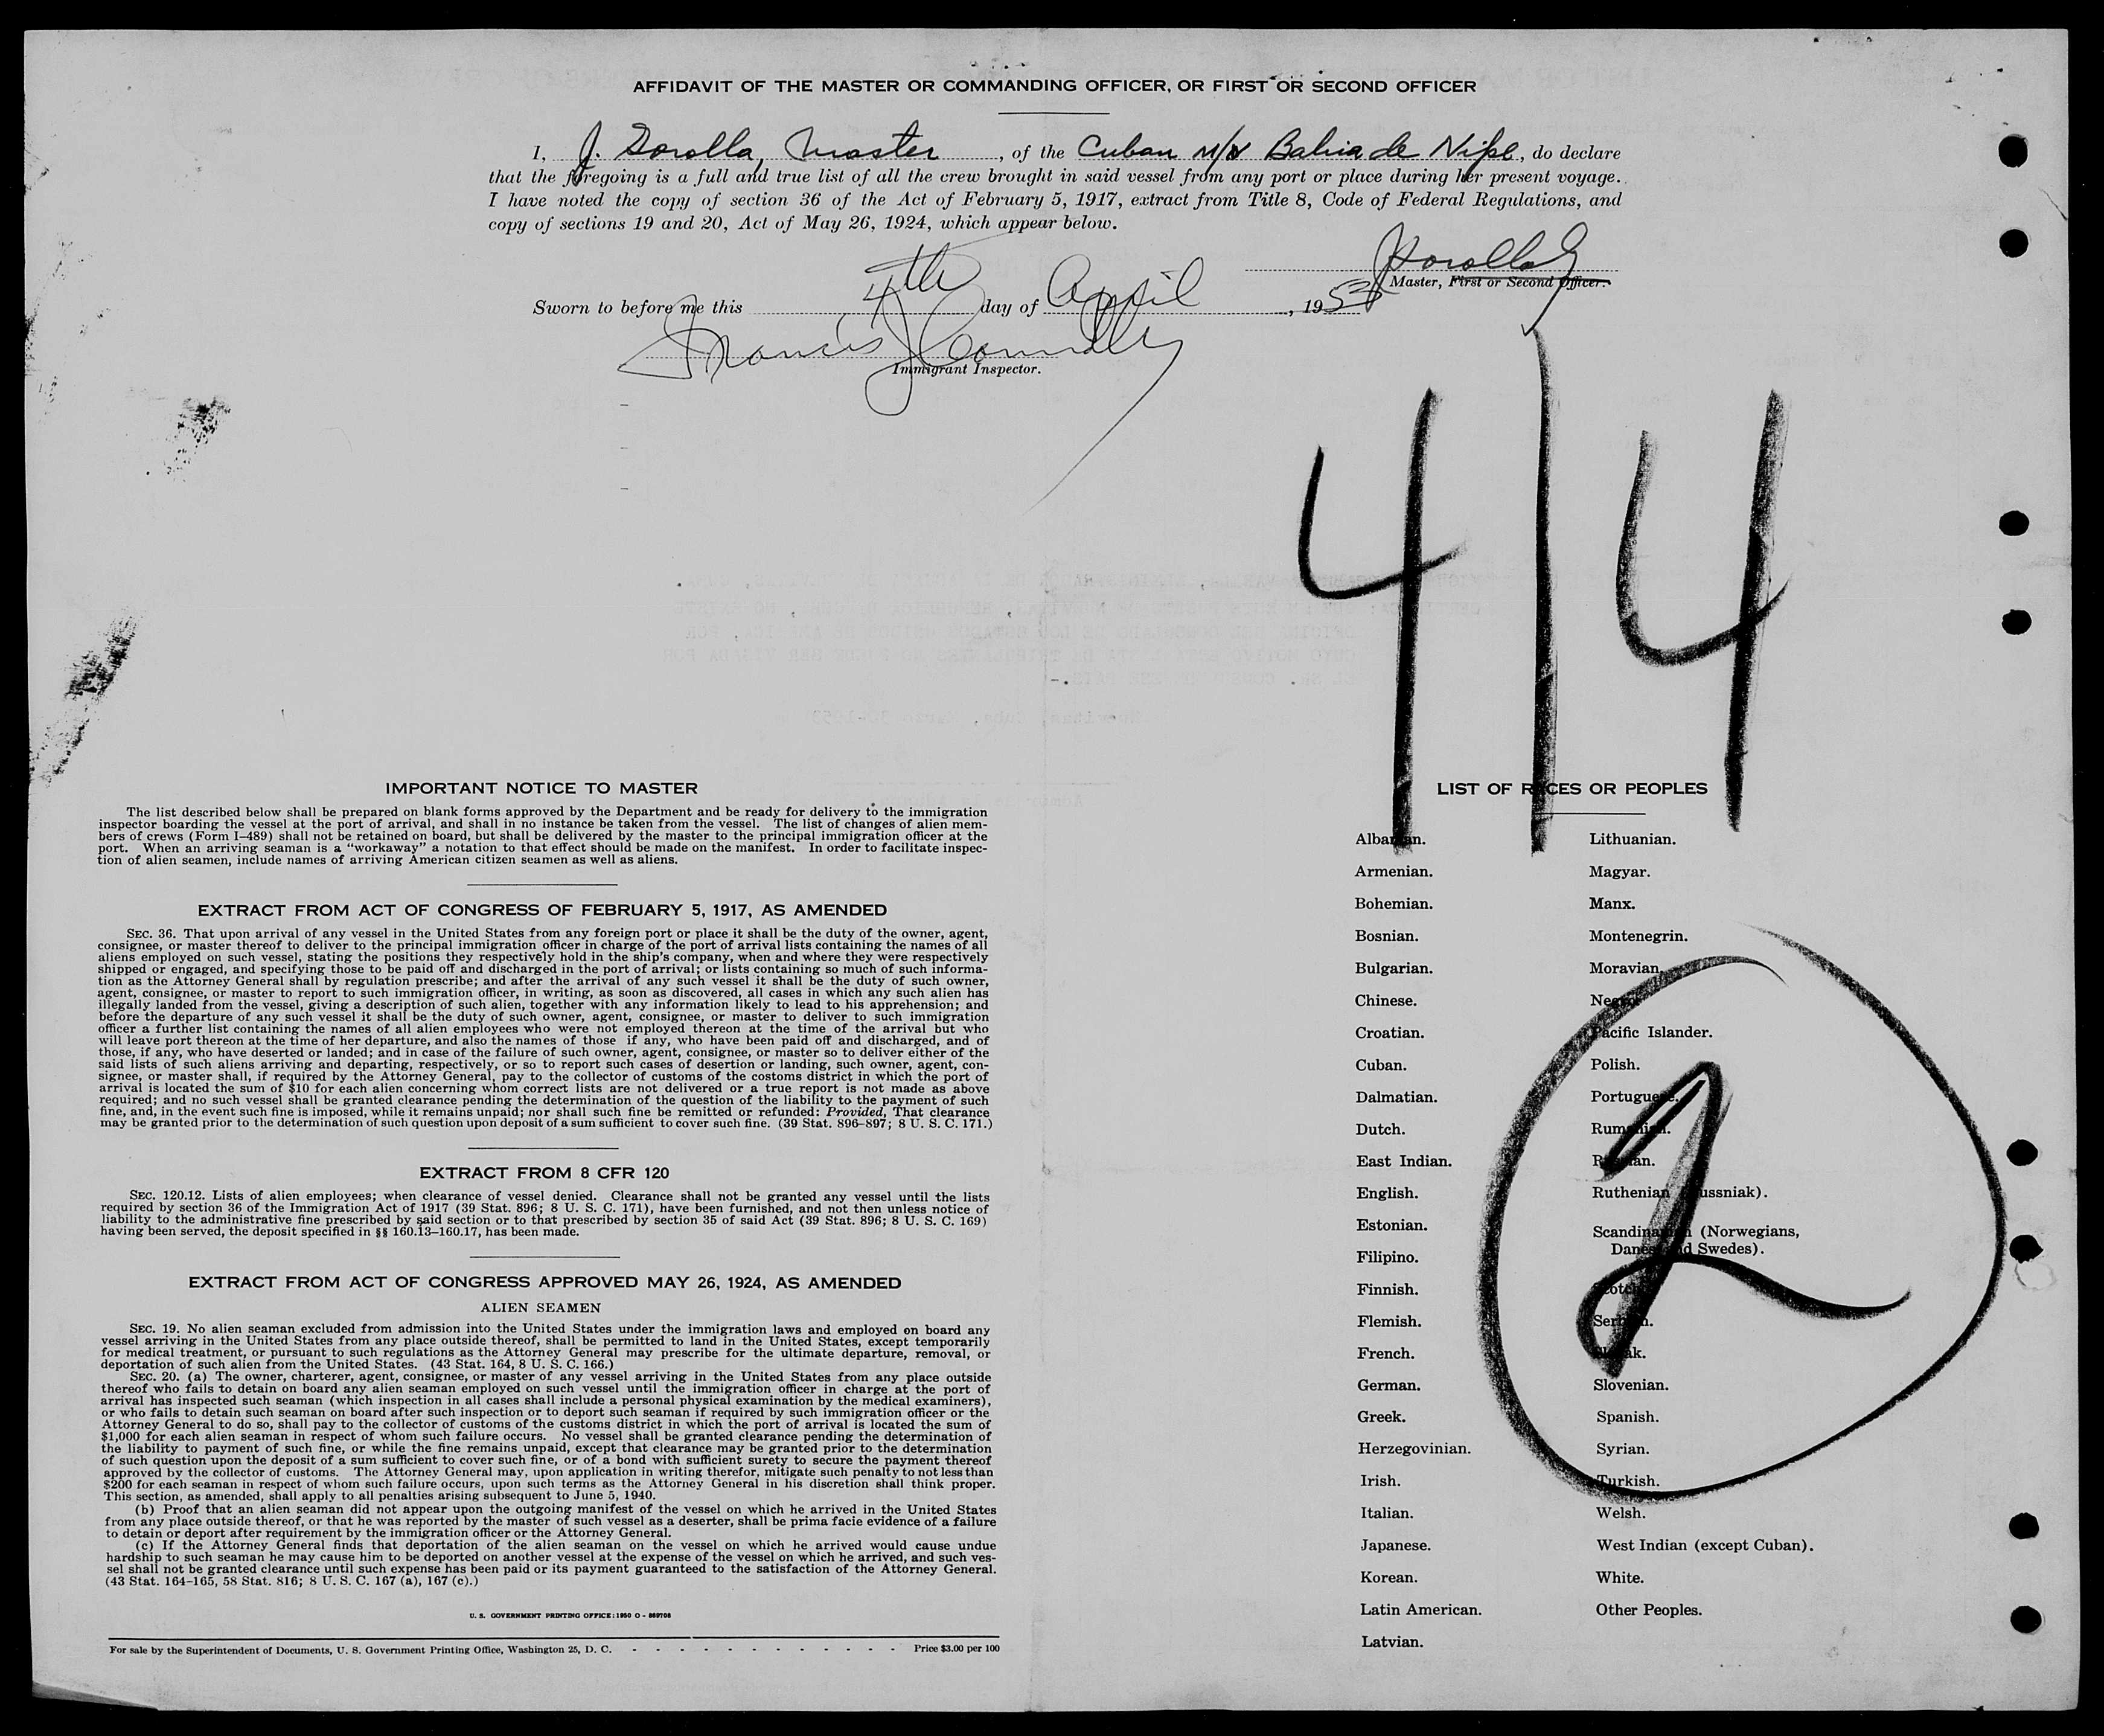 AFFIDAVIT OF THE MASTER OR COMMANDING OFFICER, OR FIRST OR SECOND OFFICER
I, J. Sorolla, Master, of the Cuban M/V Bahia de Nipe, do declare
that the foregoing is a full and true list of all the crew brought in said vessel from any port or place during her present voyage.
I have noted the copy of section 36 of the Act of February 5, 1917, extract from Title 8, Code of Federal Regulations, and
copy of sections 19 and 20, Act of May 26, 1924, which appear below.
JSorolla
Master, First or Second Officer.
Sworn to before me this 4th day of April, 1953
Francis J Connolly
Immigrant Inspector.
4/4
IMPORTANT NOTICE TO MASTER
The list described below shall be prepared on blank forms approved by the Department and be ready for delivery to the immigration
inspector boarding the vessel at the port of arrival, and shall in no instance be taken from the vessel. The list of changes of alien mem-
bers of crews (Form I-489) shall not be retained on board, but shall be delivered by the master to the principal immigration officer at the
port. When an arriving seaman is a "workaway" a notation to that effect should be made on the manifest. In order to facilitate inspec-
tion of alien seamen, include names of arriving American citizen seamen as well as aliens.
EXTRACT FROM ACT OF CONGRESS OF FEBRUARY 5, 1917, AS AMENDED
SEC. 36. That upon arrival of any vessel in the United States from any foreign port or place it shall be the duty of the owner, agent,
consignee, or master thereof to deliver to the principal immigration officer in charge of the port of arrival lists containing the names of all
aliens employed on such vessel, stating the positions they respectively hold in the ship's company, when and where they were respectively
shipped or engaged, and specifying those to be paid off and discharged in the port of arrival; or lists containing so much of such informa-
tion as the Attorney General shall by regulation prescribe; and after the arrival of any such vessel it shall be the duty of such owner,
agent, consignee, or master to report to such immigration officer, in writing, as soon as discovered, all cases in which any such alien has
illegally landed from the vessel, giving a description of such alien, together with any information likely to lead to his apprehension; and
before the departure of any such vessel it shall be the duty of such owner, agent, consignee, or master to deliver to such immigration
officer a further list containing the names of all alien employees who were not employed thereon at the time of the arrival but who
will leave port thereon at the time of her departure, and also the names of those if any, who have been paid off and discharged, and of
those, if any, who have deserted or landed; and in case of the failure of such owner, agent, consignee, or master so to deliver either of the
said lists of such aliens arriving and departing, respectively, or so to report such cases of desertion or landing, such owner, agent, con-
signee, or master shall, if required by the Attorney General, pay to the collector of customs of the costoms district in which the port of
arrival is located the sum of $10 for each alien concerning whom correct lists are not delivered or a true report is not made as above
required; and no such vessel shall be granted clearance pending the determination of the question of the liability to the payment of such
fine, and, in the event such fine is imposed, while it remains unpaid; nor shall such fine be remitted or refunded: Provided, That clearance
may be granted prior to the determination of such question upon deposit of a sum sufficient to cover such fine. (39 Stat. 896-897; 8 U. S. C. 171.)
EXTRACT FROM 8 CFR 120
SEC. 120.12. Lists of alien employees; when clearance of vessel denied. Clearance shall not be granted any vessel until the lists
required by section 36 of the Immigration Act of 1917 (39 Stat. 896; 8 U. S. C. 171), have been furnished, and not then unless notice of
liability to the administrative fine prescribed by said section or to that prescribed by section 35 of said Act (39 Stat. 896; 8 U. S. C. 169)
having been served, the deposit specified in §§ 160.13-160.17, has been made.
EXTRACT FROM ACT OF CONGRESS APPROVED MAY 26, 1924, AS AMENDED
ALIEN SEAMEN
SEC. 19. No alien seaman excluded from admission into the United States under the immigration laws and employed on board any
vessel arriving in the United States from any place outside thereof, shall be permitted to land in the United States, except temporarily
for medical treatment, or pursuant to such regulations as the Attorney General may prescribe for the ultimate departure, removal, or
deportation of such alien from the United States. (43 Stat. 164, 8 U. S. C. 166.)
SEC. 20. (a) The owner, charterer, agent, consignee, or master of any vessel arriving in the United States from any place outside
thereof who fails to detain on board any alien seaman employed on such vessel until the immigration officer in charge at the port of
arrival has inspected such seaman (which inspection in all cases shall include a personal physical examination by the medical examiners),
or who fails to detain such seaman on board after such inspection or to deport such seaman if required by such immigration officer or the
Attorney General to do so, shall pay to the collector of customs of the customs district in which the port of arrival is located the sum of
$1,000 for each alien seaman in respect of whom such failure occurs. No vessel shall be granted clearance pending the determination of
the liability to payment of such fine, or while the fine remains unpaid, except that clearance may be granted prior to the determination
of such question upon the deposit of a sum sufficient to cover such fine, or of a bond with sufficient surety to secure the payment thereof
approved by the collector of customs. The Attorney General may, upon application in writing therefor, mitigate such penalty to not less than
$200 for each seaman in respect of whom such failure occurs, upon such terms as the Attorney General in his discretion shall think proper.
This section, as amended, shall apply to all penalties arising subsequent to June 5, 1940.
(b) Proof that an alien seaman did not appear upon the outgoing manifest of the vessel on which he arrived in the United States
from any place outside thereof, or that he was reported by the master of such vessel as a deserter, shall be prima facie evidence of a failure
to detain or deport after requirement by the immigration officer or the Attorney General.
(c) If the Attorney General finds that deportation of the alien seaman on the vessel on which he arrived would cause undue
hardship to such seaman he may cause him to be deported on another vessel at the expense of the vessel on which he arrived, and such ves-
sel shall not be granted clearance until such expense has been paid or its payment guaranteed to the satisfaction of the Attorney General.
(43 Stat. 164-165, 58 Stat. 816; 8 U. S. C. 167 (a), 167 (c).)
U. S. GOVERNMENT PRINTING OFFICE: 1950 O - 869708
For sale by the Superintendent of Documents, U. S. Government Printing Office, Washington 25, D. C. - - - - - - - - - - - Price $3.00 per 100
LIST OF RACES OR PEOPLES
Albanian.
Armenian.
Bohemian.
Bosnian.
Bulgarian.
Chinese.
Croatian.
Cuban.
Dalmatian.
Dutch.
East Indian.
English.
Estonian.
Filipino.
Finnish.
Flemish.
French.
German.
Greek.
Herzegovinian.
Irish.
Italian.
Japanese.
Korean.
Latin American.
Latvian.
Lithuanian.
Magyar.
Manx.
Montenegrin.
Moravian.
Negro.
Pacific Islander.
Polish.
Portuguese.
Rumanian.
Russian.
Ruthenian (Russniak).
Scandinavian (Norwegians,
Danes and Swedes).
Scotch.
Serbian.
Slovak.
Slovenian.
Spanish.
Syrian.
Turkish.
Welsh.
West Indian (except Cuban).
White.
Other Peoples.
2